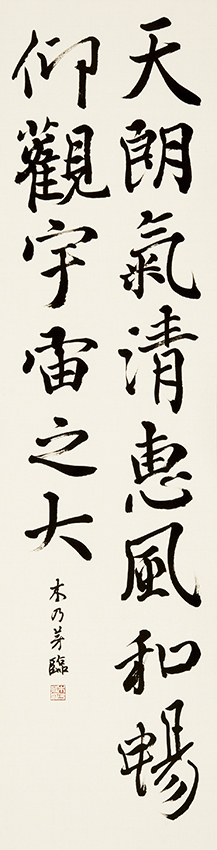 天朗氣清惠風和暢
仰觀宇宙之大
木乃芽臨